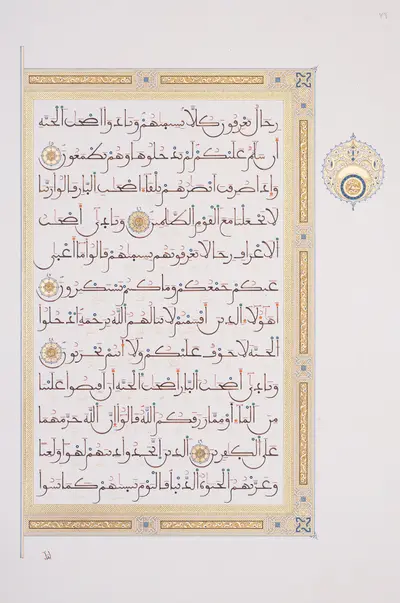 رجال يعرفون كلا بسيمهم ونادوا أصحب الجنة
أن سلم عليكم لم يدخلوها وهم يطمعون
وإذا صرفت أبصرهم تلقاء أصحب النار قالوا ربنا
لا تجعلنا مع القوم الظلمين ونادى أصحب
الأعراف رجالا يعرفونهم بسيمهم قالوا ما أغنى
عنكم جمعكم وما كنتم تستكبرون
أهؤلاء الذين أقسمتم لا ينالهم الله برحمة ادخلوا
الجنة لا خوف عليكم ولا أنتم تحزنون
ونادى أصحب النار أصحب الجنة أن أفيضوا علينا
من الماء أو مما رزقكم الله قالوا إن الله حرمهما
على الكفرين الذين اتخذوا دينهم لهوا ولعبا
وغرتهم الحيوة الدنيا فاليوم ننسهم كما نسوا